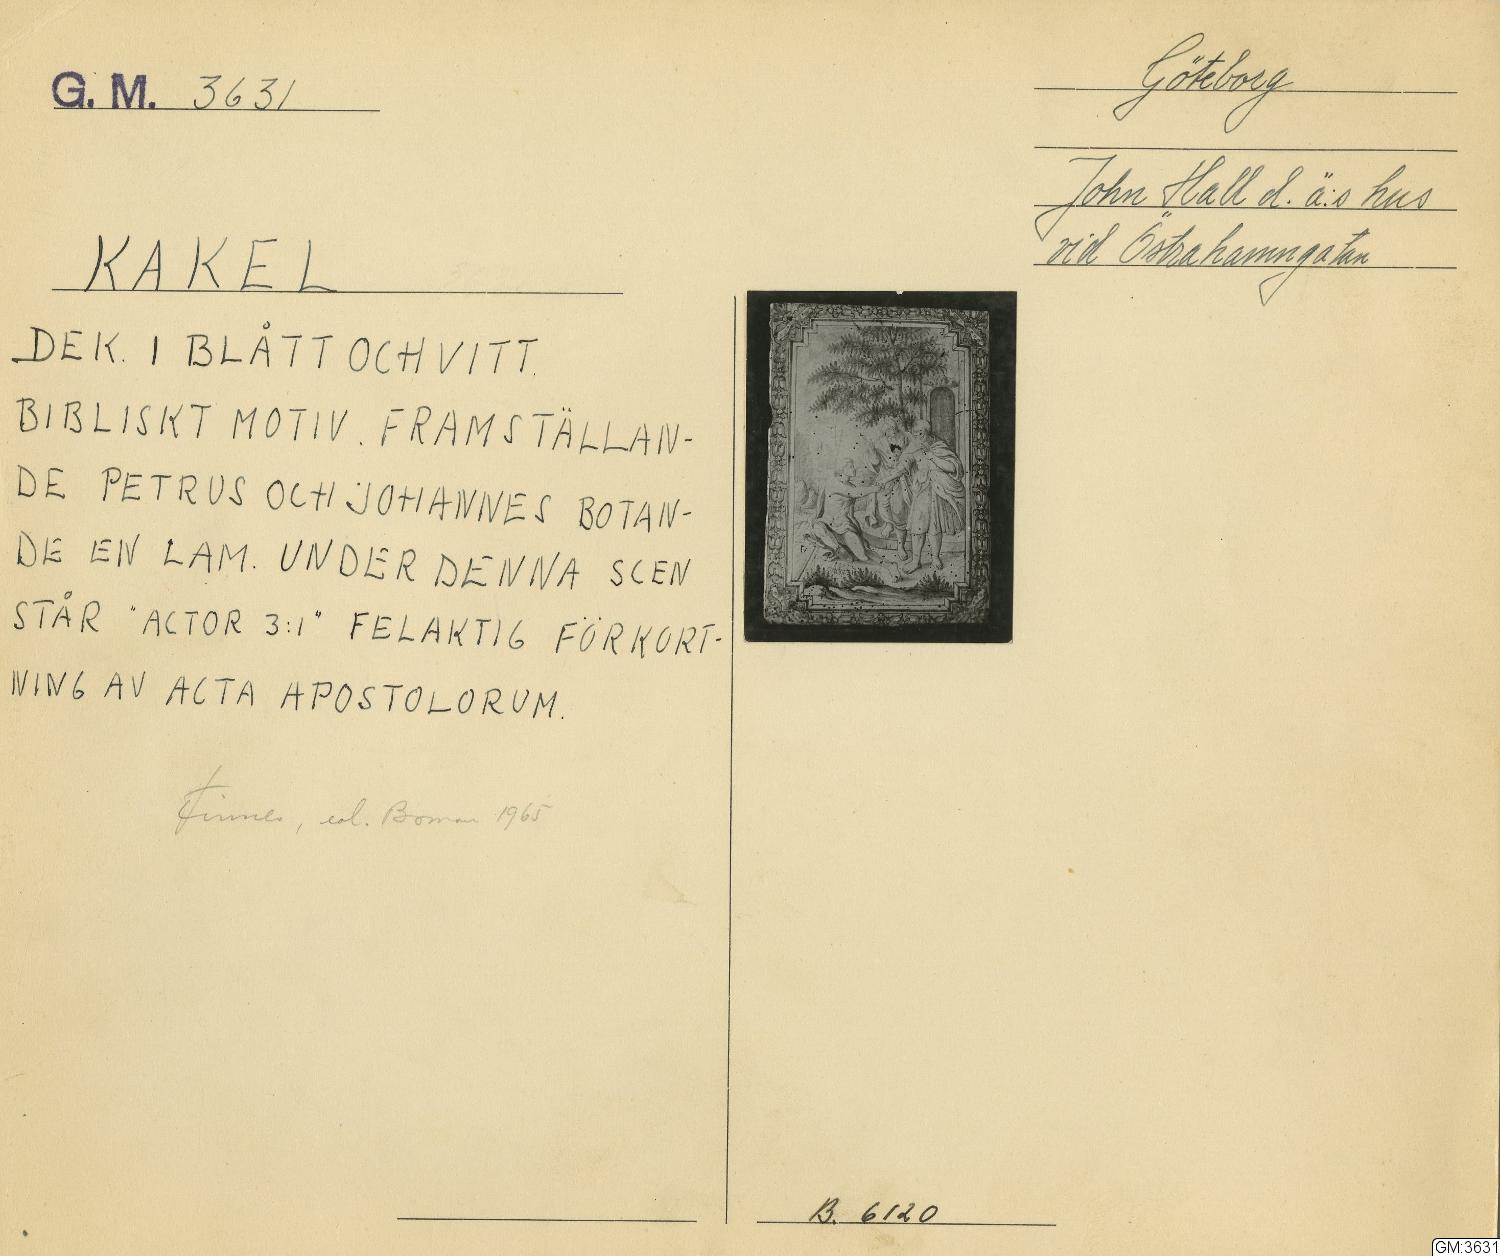 G. M. 3631
Göteborg
John Hall d. ä:s hus
vid Östrahamngatan
KAKEL
DEK. I BLÅTT OCH VITT.
BIBLISKT MOTIV. FRAMSTÄLLAN-
DE PETRUS OCH JOHANNES BOTAN-
DE EN LAM. UNDER DENNA SCEN
STÅR "ACTOR 3:1" FELAKTIG FÖRKORT-
NING AV ACTA APOSTOLORUM.
Finnes, enl. Boman 1965
B. 6120
GM:3631